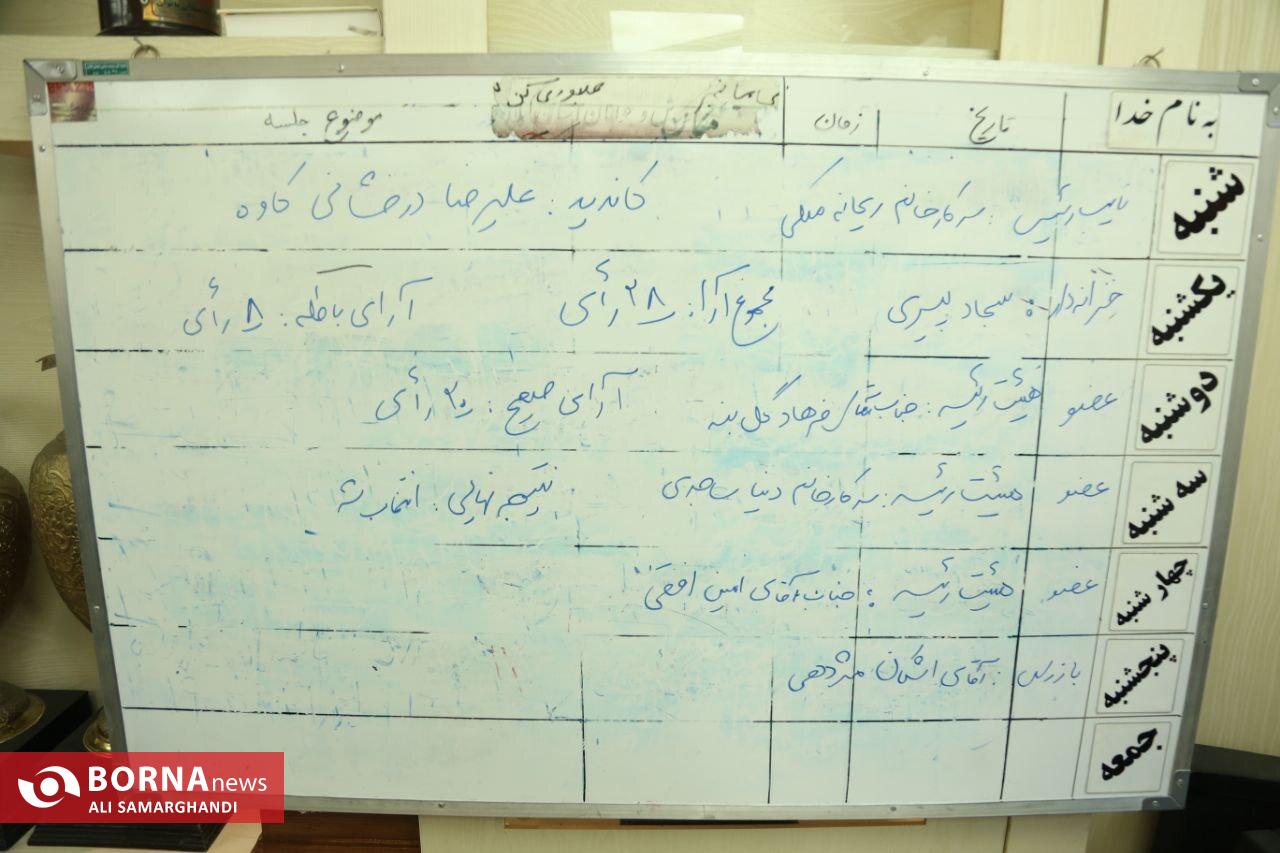 به نام خدا تاریخ زمان موضوع جلسه
شنبه نایب رئیس: سرکار خانم ریحانه ملکی کاندید: علیرضا درخشانی کاوه
یکشنبه خزانه‌دار: سجاد پسری مجموع آرا: ۲۸ رأی آرای باطله: ۸ رأی
دوشنبه عضو هیئت رئیسه: جناب آقای فرهاد گل بنه آرای صحیح: ۲۰ رأی
سه شنبه عضو هیئت رئیسه: سرکار خانم دنیا ساجدی نتیجه نهایی: انتخاب شد
چهار شنبه عضو هیئت رئیسه: جناب آقای امین افقی
پنجشنبه بازرس: آقای اشکان
جمعه
BORNA news
ALI SAMARGHANDI